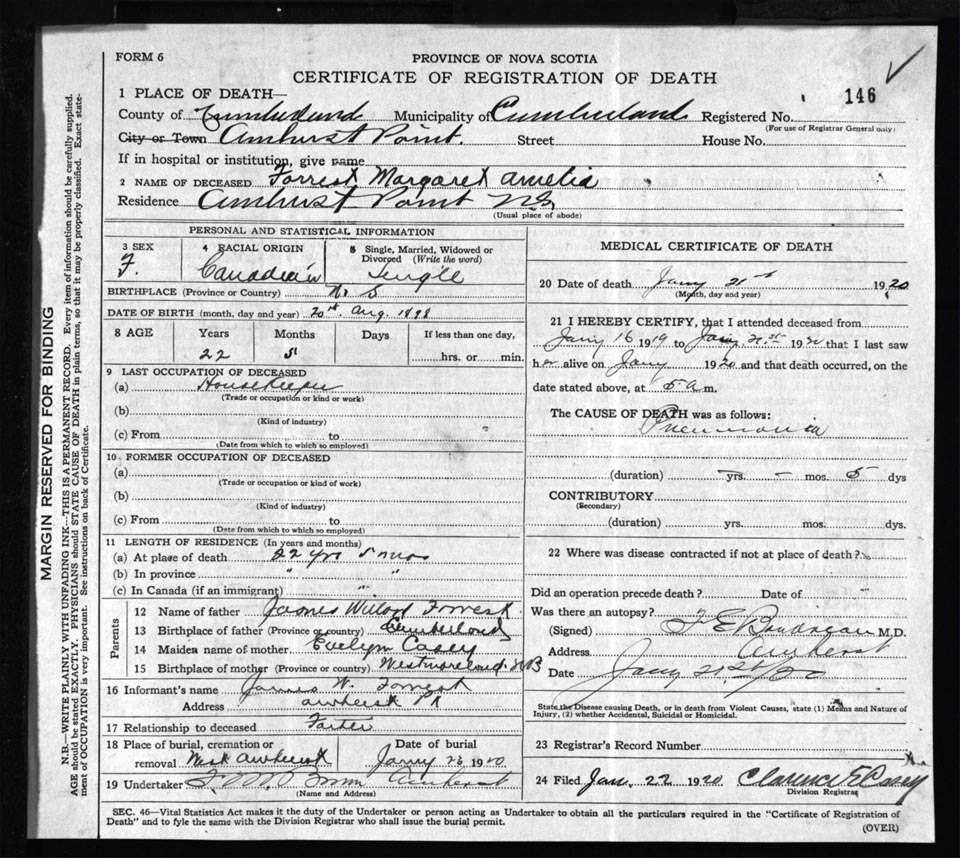 FORM 6
PROVINCE OF NOVA SCOTIA
CERTIFICATE OF REGISTRATION OF DEATH
146
1 PLACE OF DEATH—
County of Cumberland Municipality of Cumberland Registered No.
(For use of Registrar General only)
City or Town Amherst Point. Street House No.
If in hospital or institution, give name
2 NAME OF DECEASED Forrest Margaret Amelia
Residence Amherst Point N.S.
(Usual place of abode)
PERSONAL AND STATISTICAL INFORMATION
3 SEX 4 RACIAL ORIGIN 5 Single, Married, Widowed or
Divorced (Write the word)
F. Canadian Single
BIRTHPLACE (Province or Country) N. S
DATE OF BIRTH (month, day and year) 20th Aug. 1898
8 AGE Years Months Days If less than one day,
22 5 hrs. or min.
9 LAST OCCUPATION OF DECEASED
(a) Housekeeper
(Trade or occupation or kind or work)
(b)
(Kind of industry)
(c) From to
(Date from which to which so employed)
10 FORMER OCCUPATION OF DECEASED
(a)
(Trade or occupation or kind of work)
(b)
(Kind of industry)
(c) From to
(Date from which to which so employed)
11 LENGTH OF RESIDENCE (In years and months)
(a) At place of death 22 yrs 5 mos
(b) In province " "
(c) In Canada (if an immigrant) "
Parents
12 Name of father James Willard Forrest.
13 Birthplace of father (Province or country) Cumberland
14 Maiden name of mother Evelyn Casey
15 Birthplace of mother (Province or country) Westmoreland N B
16 Informant's name James W. Forrest
Address Amherst Pt
17 Relationship to deceased Father
18 Place of burial, cremation or Date of burial
removal West Amherst Jany 23 1920
19 Undertaker Amherst
(Name and Address)
MEDICAL CERTIFICATE OF DEATH
20 Date of death Jany 21st 1920
(Month, day and year)
21 I HEREBY CERTIFY, that I attended deceased from
Jany 16 1919 to Jany 21st 1920 that I last saw
her alive on Jany 1920 and that death occurred, on the
date stated above, at 5 a.m.
The CAUSE OF DEATH was as follows:
Pneumonia
(duration) yrs. - mos. 5 dys
CONTRIBUTORY
(Secondary)
(duration) yrs. mos. dys.
22 Where was disease contracted if not at place of death?
Did an operation precede death? Date of
Was there an autopsy?
(Signed) F E Boudreau M.D.
Address Amherst
Date Jany 21st/20
State the Disease causing Death, or in death from Violent Causes, state (1) Means and Nature of
Injury, (2) whether Accidental, Suicidal or Homicidal.
23 Registrar's Record Number
24 Filed Jan. 22 1920 Clarence E Casey
Division Registrar
SEC. 46—Vital Statistics Act makes it the duty of the Undertaker or person acting as Undertaker to obtain all the particulars required in the "Certificate of Registration of
Death" and to fyle the same with the Division Registrar who shall issue the burial permit.
(OVER)
MARGIN RESERVED FOR BINDING
N.B.—WRITE PLAINLY WITH UNFADING INK—THIS IS A PERMANENT RECORD. Every item of information should be carefully supplied.
AGE should be stated EXACTLY. PHYSICIANS should STATE CAUSE OF DEATH in plain terms, so that it may be properly classified. Exact state-
ment of OCCUPATION is very important. See instructions on back of Certificate.